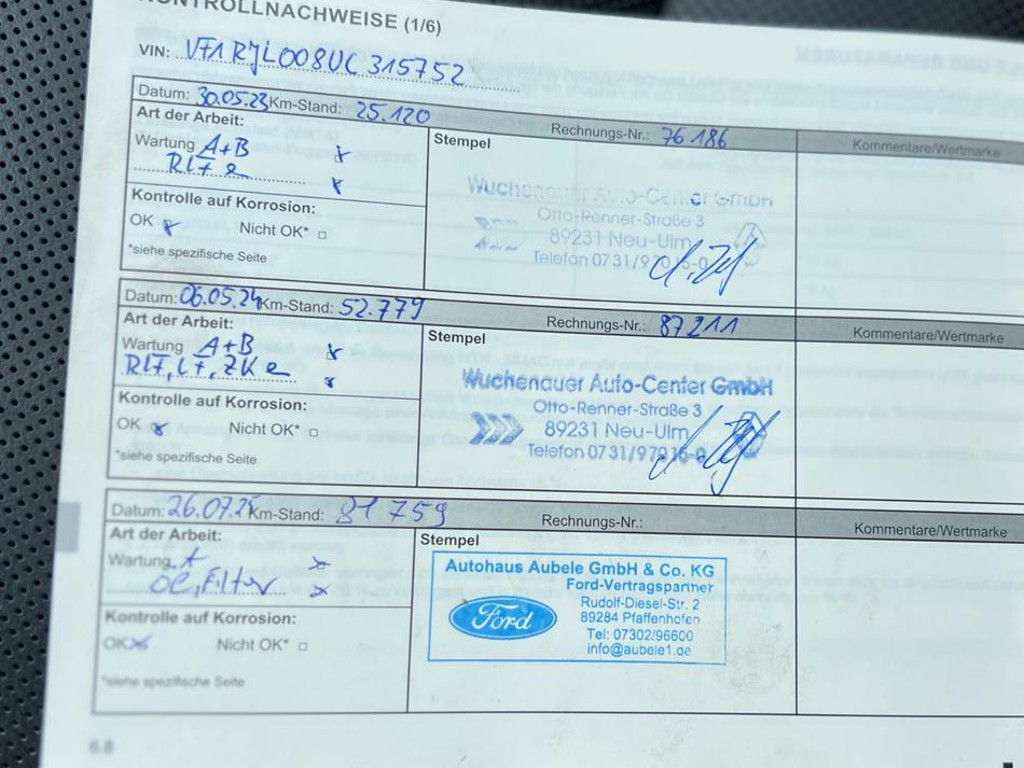 KONTROLLNACHWEISE (1/6)
VIN: VF1RJL008UC315752
Datum: 30.05.23 Km-Stand: 25.120 Rechnungs-Nr.: 76186 Kommentare/Wertmarke
Art der Arbeit:
Wartung A+B
Stempel
Wuchenauer Auto-Center GmbH
Otto-Renner-Straße 3
89231 Neu-Ulm
Telefon 0731/97015-0
Kontrolle auf Korrosion:
OK Nicht OK*
*siehe spezifische Seite
Datum: 06.05.24 Km-Stand: 52.779 Rechnungs-Nr.: 87211 Kommentare/Wertmarke
Art der Arbeit:
Wartung A+B
RLF, LF, ZK e
Stempel
Wuchenauer Auto-Center GmbH
Otto-Renner-Straße 3
89231 Neu-Ulm
Telefon 0731/97015-0
Kontrolle auf Korrosion:
OK Nicht OK*
*siehe spezifische Seite
Datum: 26.07.25 Km-Stand: 81759 Rechnungs-Nr.: Kommentare/Wertmarke
Art der Arbeit:
Wartung A
Oel, Filter
Stempel
Autohaus Aubele GmbH & Co. KG
Ford-Vertragspartner
Ford
Rudolf-Diesel-Str. 2
89284 Pfaffenhofen
Tel: 07302/96600
info@aubele1.de
Kontrolle auf Korrosion:
OK Nicht OK*
*siehe spezifische Seite
6.8